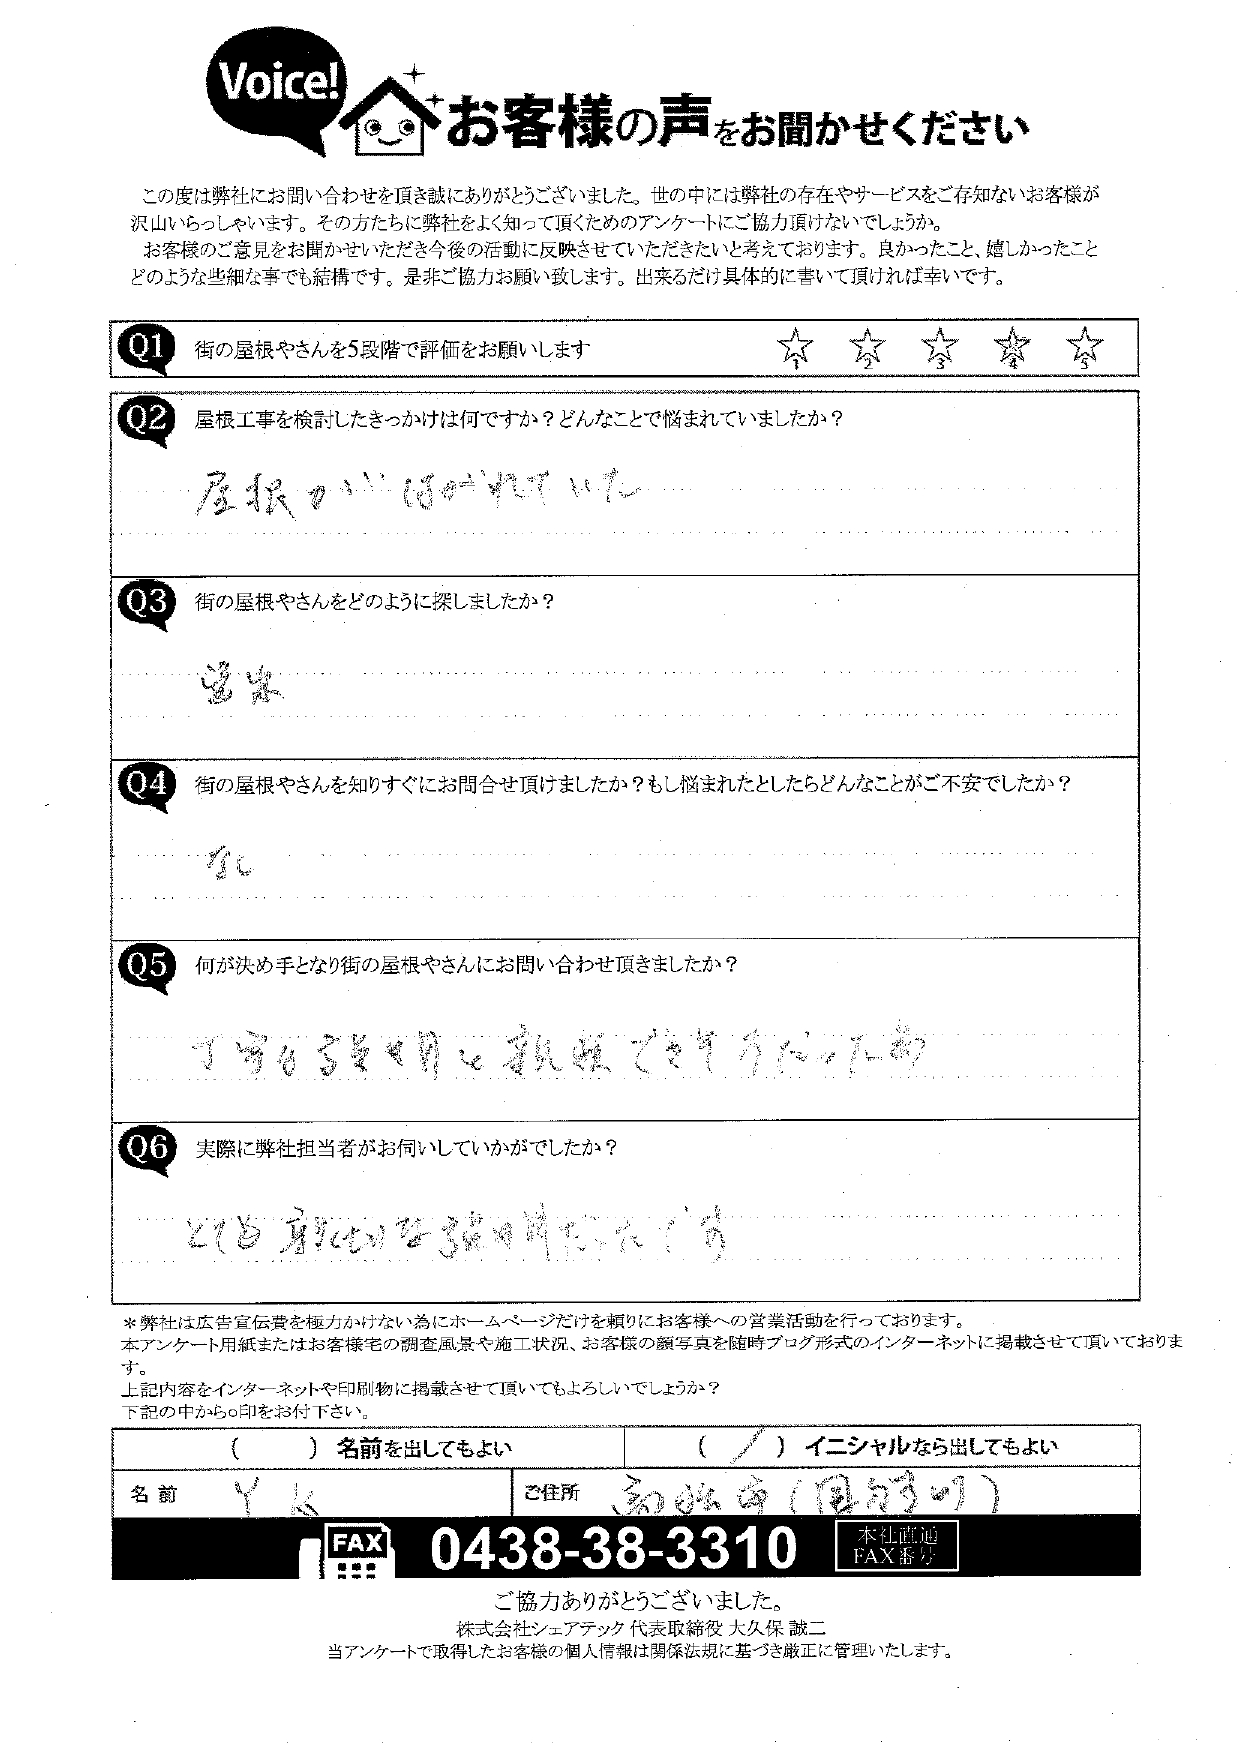 Voice!
お客様の声をお聞かせください
この度は弊社にお問い合わせを頂き誠にありがとうございました。世の中には弊社の存在やサービスをご存知ないお客様が
沢山いらっしゃいます。その方たちに弊社をよく知って頂くためのアンケートにご協力頂けないでしょうか。
お客様のご意見をお聞かせいただき今後の活動に反映させていただきたいと考えております。良かったこと、嬉しかったこと
どのような些細な事でも結構です。是非ご協力お願い致します。出来るだけ具体的に書いて頂ければ幸いです。
Q1 街の屋根やさんを5段階で評価をお願いします ☆1 ☆2 ☆3 ☆4 ☆5
Q2 屋根工事を検討したきっかけは何ですか?どんなことで悩まれていましたか?
屋根がはがれていた
Q3 街の屋根やさんをどのように探しましたか?
Q4 街の屋根やさんを知りすぐにお問合せ頂けましたか?もし悩まれたとしたらどんなことがご不安でしたか?
なし
Q5 何が決め手となり街の屋根やさんにお問い合わせ頂きましたか?
丁寧な説明と信頼できそうだった為
Q6 実際に弊社担当者がお伺いしていかがでしたか?
とても親切な説明だったです
＊弊社は広告宣伝費を極力かけない為にホームページだけを頼りにお客様への営業活動を行っております。
本アンケート用紙またはお客様宅の調査風景や施工状況、お客様の顔写真を随時ブログ形式のインターネットに掲載させて頂いておりま
す。
上記内容をインターネットや印刷物に掲載させて頂いてもよろしいでしょうか?
下記の中から○印をお付下さい。
( ) 名前を出してもよい ( / ) イニシャルなら出してもよい
名前 Y K ご住所 高松市(国分寺町)
FAX 0438-38-3310 本社直通
FAX番号
ご協力ありがとうございました。
株式会社シェアテック 代表取締役 大久保 誠二
当アンケートで取得したお客様の個人情報は関係法規に基づき厳正に管理いたします。